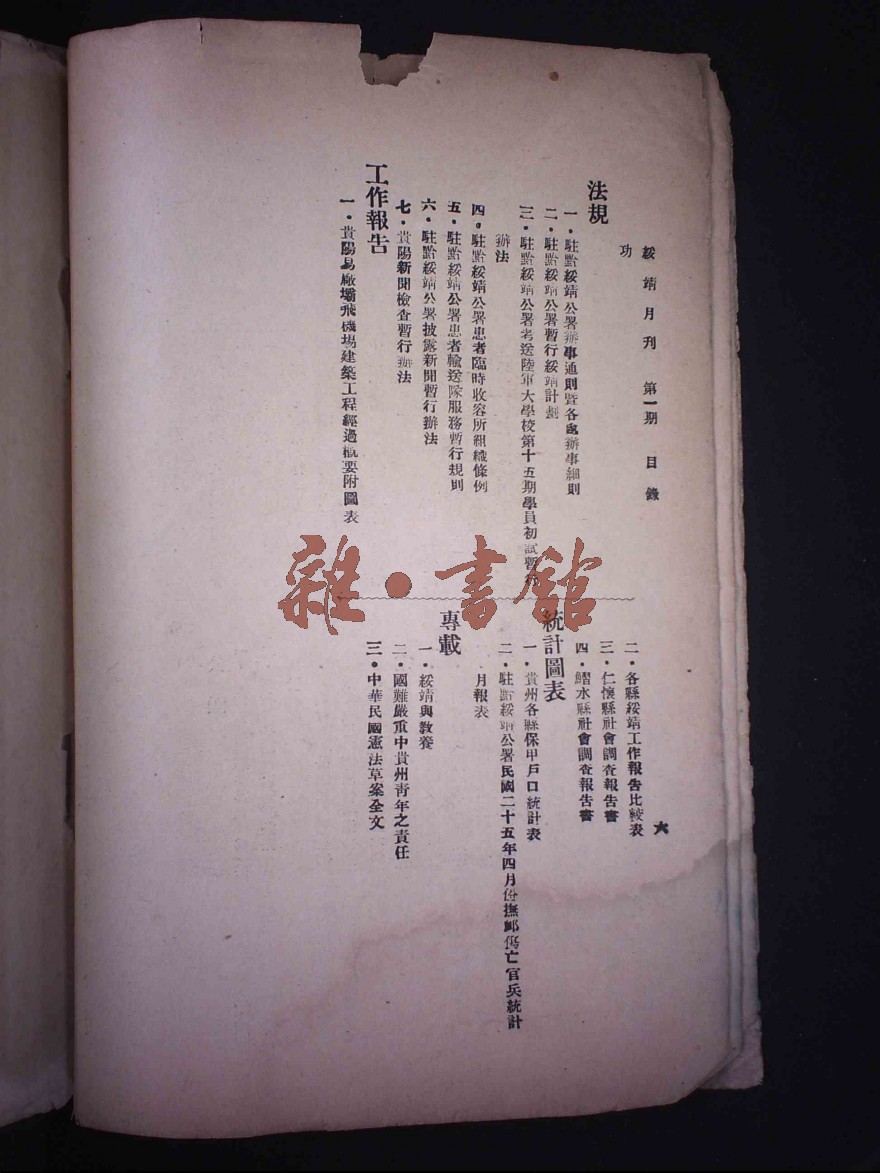 綏靖月刊 第一期 目錄
六
功
法規
一．駐黔綏靖公署辦事通則暨各處辦事細則
二．駐黔綏靖公署暫行綏靖計劃
三．駐黔綏靖公署考送陸軍大學校第十五期學員初試暫行
辦法
四．駐黔綏靖公署患者臨時收容所組織條例
五．駐黔綏靖公署患者輸送隊服務暫行規則
六．駐黔綏靖公署披露新聞暫行辦法
七．貴陽新聞檢查暫行辦法
工作報告
一．貴陽易廠壩飛機場建築工程經過概要附圖表
二．各縣綏靖工作報告比較表
三．仁懷縣社會調查報告書
四．鰼水縣社會調查報告書
統計圖表
一．貴州各縣保甲戶口統計表
二．駐黔綏靖公署民國二十五年四月份撫卹傷亡官兵統計
月報表
專載
一．綏靖與教養
二．國難嚴重中貴州青年之責任
三．中華民國憲法草案全文
雜·書館